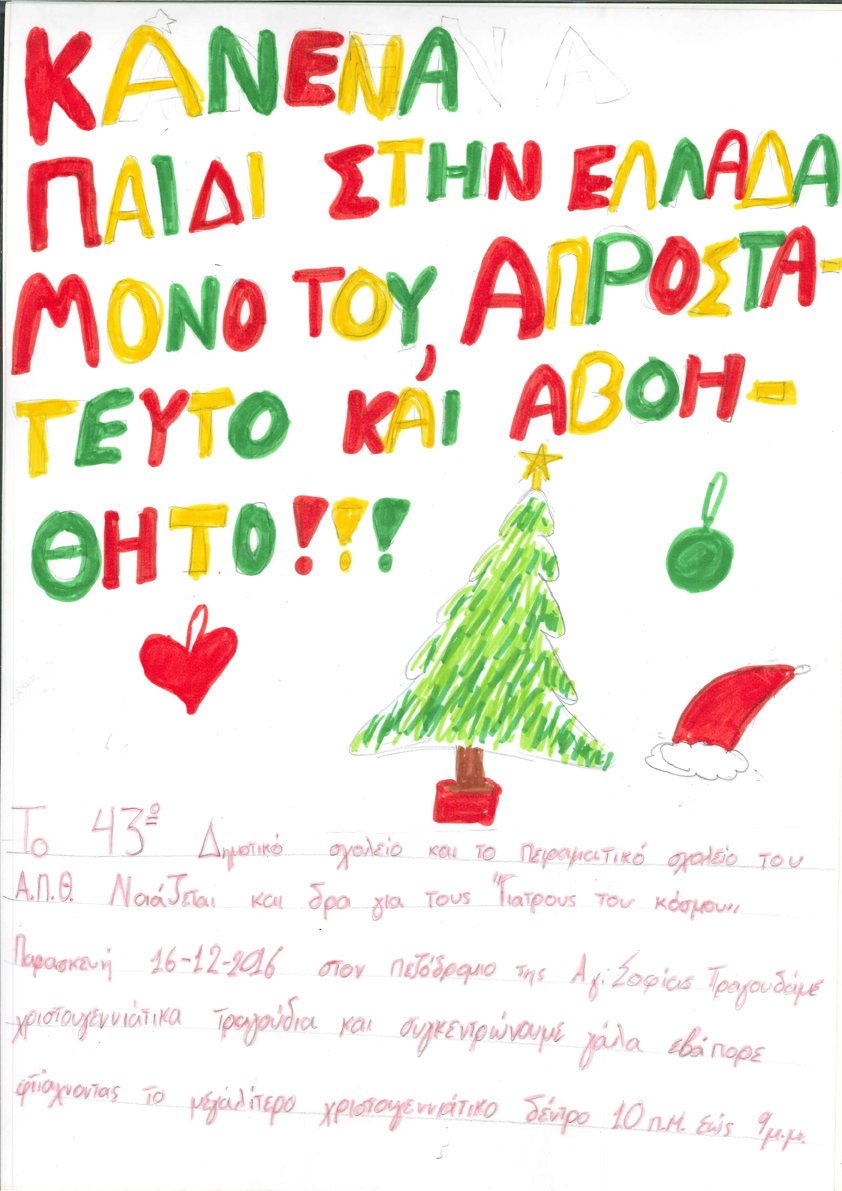 ΚΑΝΕΝΑ
ΠΑΙΔΙ ΣΤΗΝ ΕΛΛΑΔΑ
ΜΟΝΟ ΤΟΥ, ΑΠΡΟΣΤΑ-
ΤΕΥΤΟ ΚΑΙ ΑΒΟΗ-
ΘΗΤΟ!!!
Το 43º Δημοτικό σχολείο και το Πειραματικό σχολείο του
Α.Π.Θ. Νοιάζεται και δρα για τους "Γιατρους του κόσμου,,
Παρασκευή 16-12-2016 στον πεζόδρομο της Αγ. Σοφίας Τραγουδάμε
χριστουγεννιάτικα τραγούδια και συγκεντρώνουμε γάλα εβάπορε
φτιάχνοντας το μεγαλίτερο χριστουγεννιάτικο δέντρο 10 π.μ. έως 9μ.μ.